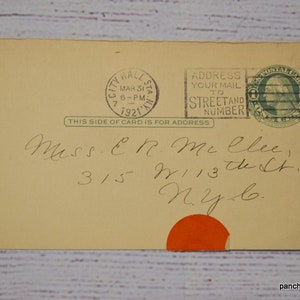 CITY HALL STA. N.Y.
7
MAR 31
6-PM
1921
ADDRESS
YOUR MAIL
TO
STREET AND
NUMBER
THIS SIDE OF CARD IS FOR ADDRESS
Miss. E R
315 W 113th St.
N.Y.C.
panch